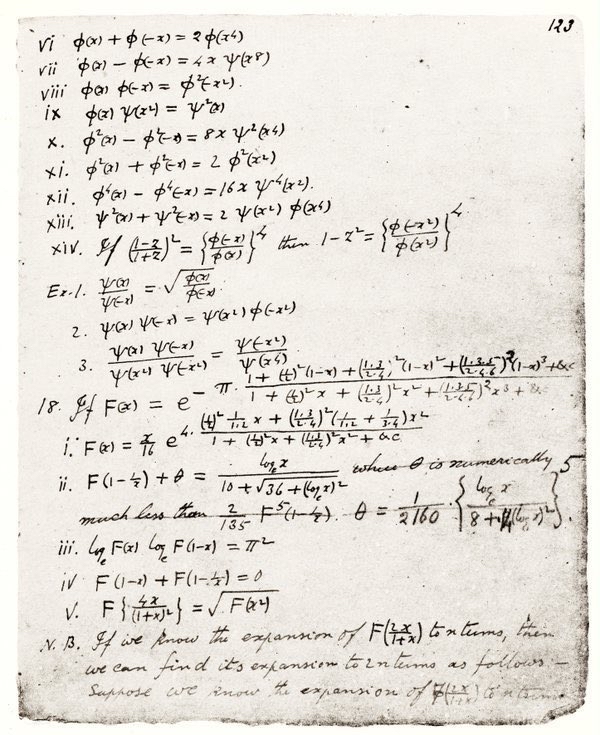 123
vi φ(x) + φ(-x) = 2φ(x⁴)
vii φ(x) - φ(-x) = 4x ψ(x⁸)
viii φ(x) φ(-x) = φ²(-x²).
ix φ(x) ψ(x²) = ψ²(x)
x. φ²(x) - φ²(-x) = 8x ψ²(x⁴)
xi. φ²(x) + φ²(-x) = 2 φ²(x²)
xii. φ⁴(x) - φ⁴(-x) = 16x ψ⁴(x²).
xiii. ψ²(x) + ψ²(-x) = 2 ψ(x²) φ(x⁴)
xiv. If ((1-z)/(1+z))² = {φ(-x)/φ(x)}⁴ then 1-z² = {φ(-x²)/φ(x²)}⁴
Ex.1. ψ(x)/ψ(-x) = √(φ(x)/φ(-x)).
2. ψ(x) ψ(-x) = ψ(x²) φ(-x²)
3. ψ(x) ψ(-x)/(ψ(x²) ψ(-x²)) = ψ(-x²)/ψ(x⁴).
18. If F(x) = e^(-π · (1 + (½)²(1-x) + (1·3/2·4)²(1-x)² + (1·3·5/2·4·6)²(1-x)³ + &c)/(1 + (½)²x + (1·3/2·4)²x² + (1·3·5/2·4·6)²x³ + &c))
i. F(x) = x/16 e^(4 · ((½)² 1/1·2 x + (1·3/2·4)²(1/1·2 + 1/3·4)x²)/(1 + (½)²x + (1·3/2·4)²x² + &c))
ii. F(1-1/x) + θ = logₑx/(10 + √(36 + (logₑx)²)) where θ is numerically
much less than 2/135 F⁵(1-1/x). θ = 1/2160 · {logₑx/(8 + (logₑx)²)}⁵.
iii. logₑ F(x) logₑ F(1-x) = π²
iv F(1-x) + F(1-1/x) = 0
v. F{4x/(1+x)²} = √F(x²)
N.B. If we know the expansion of F(2x/(1+x)) to n terms, then
we can find its expansion to 2n terms as follows —
Suppose we know the expansion of F(2x/(1+x)) to n terms